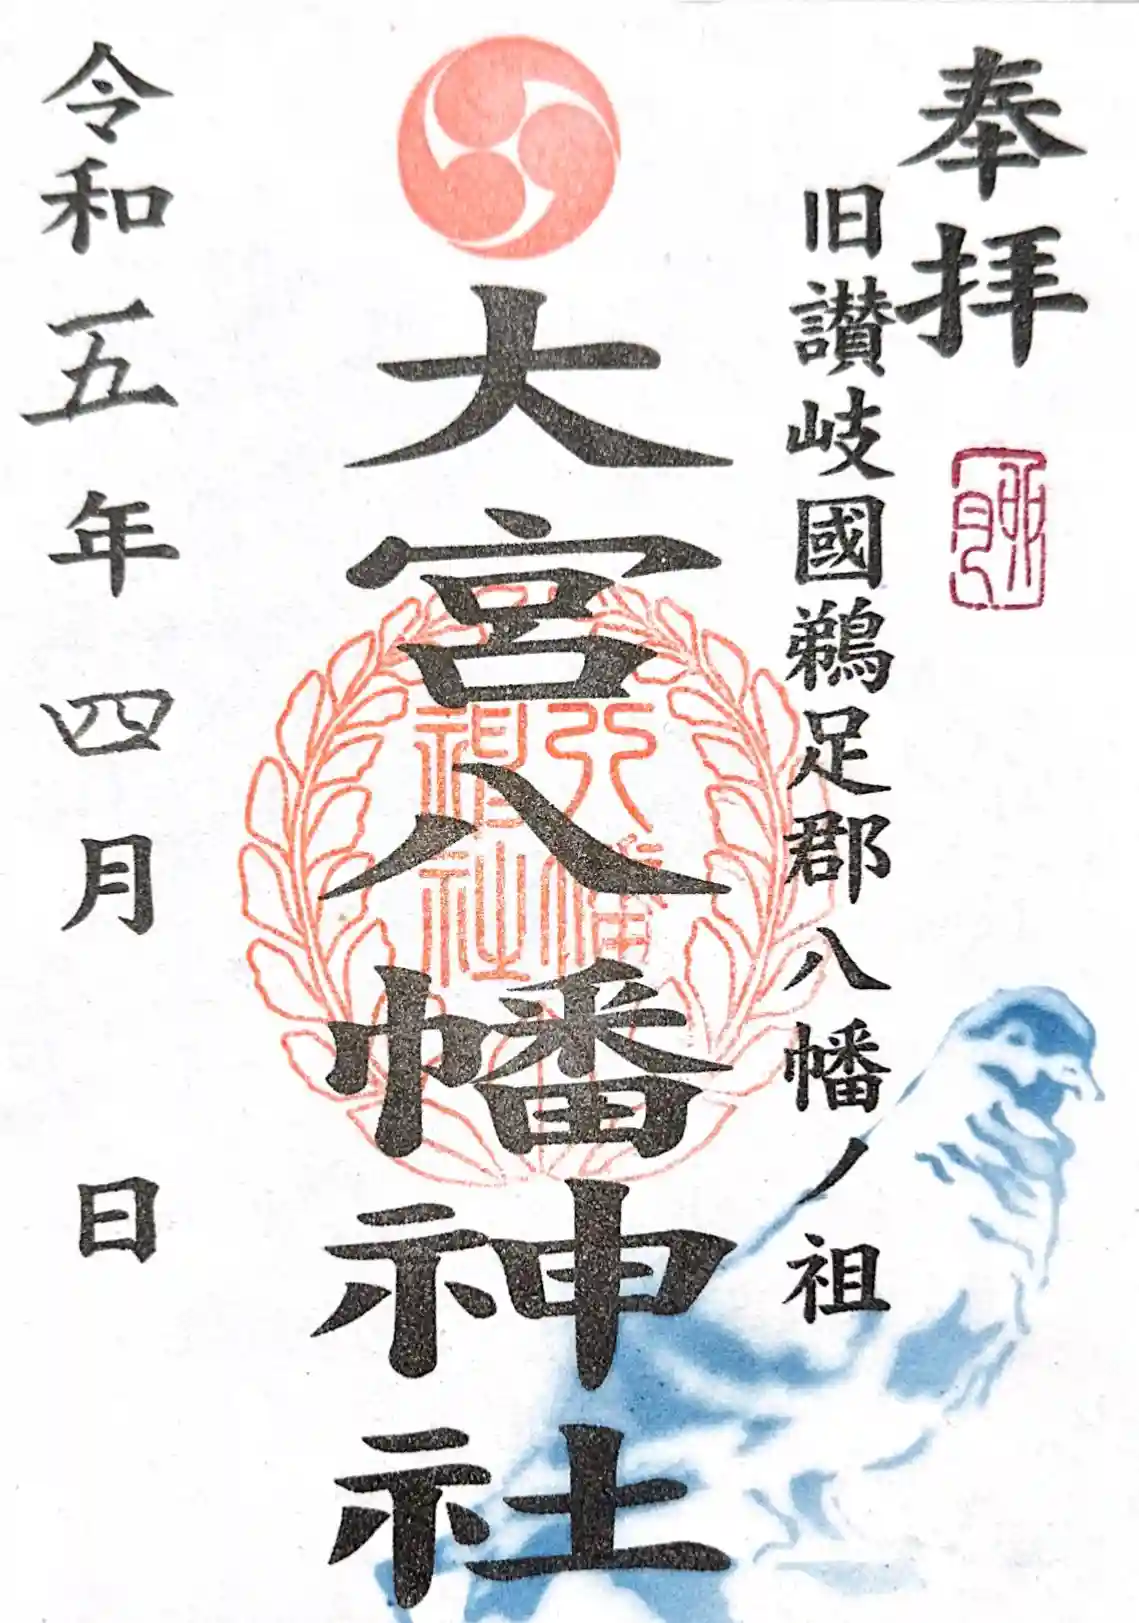 奉拝
旧讃岐國鵜足郡八幡ノ祖
大宮八幡神社
八幡
祖社
令和五年四月 日